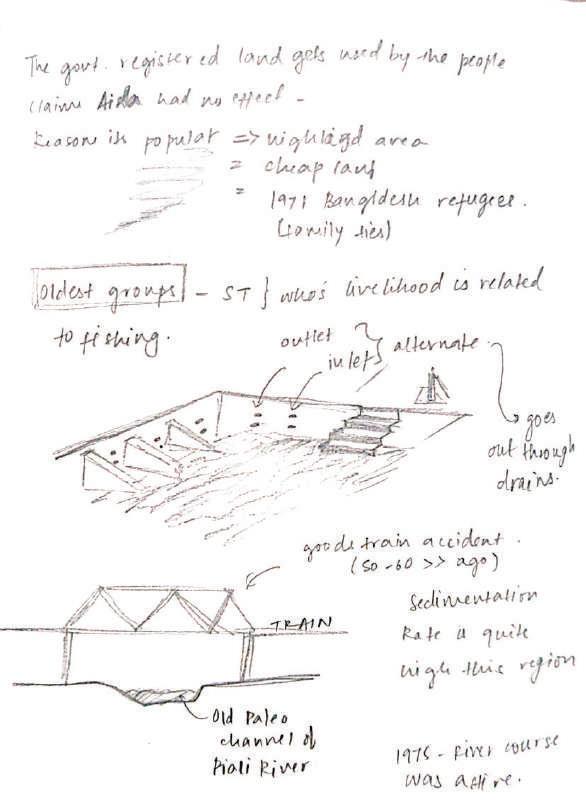 The govt. registered land gets used by the people
claime Aida had no effect -
Reason its popular => highland area
= cheap land
= 1971 Bangldesh refugees.
(family ties)
Oldest groups - ST } who's livelihood is related
to fishing.
outlet
inlet } alternate
goes
out through
drains.
goods train accident.
(50-60 >> ago)
TRAIN
Sedimentation
Rate is quite
high this region
Old Paleo
channel of
Piali River
1975 - River course
was active.